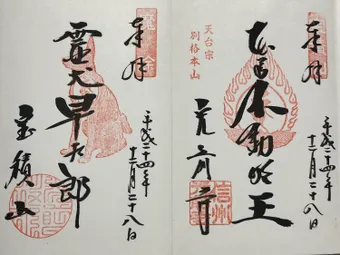 奉拝
平成二十四年
十二月二十八日
本尊不動明王
天台宗
別格本山
光前寺
信州
奉拝
平成二十四年
十二月二十八日
靈犬早太郎
宝積山